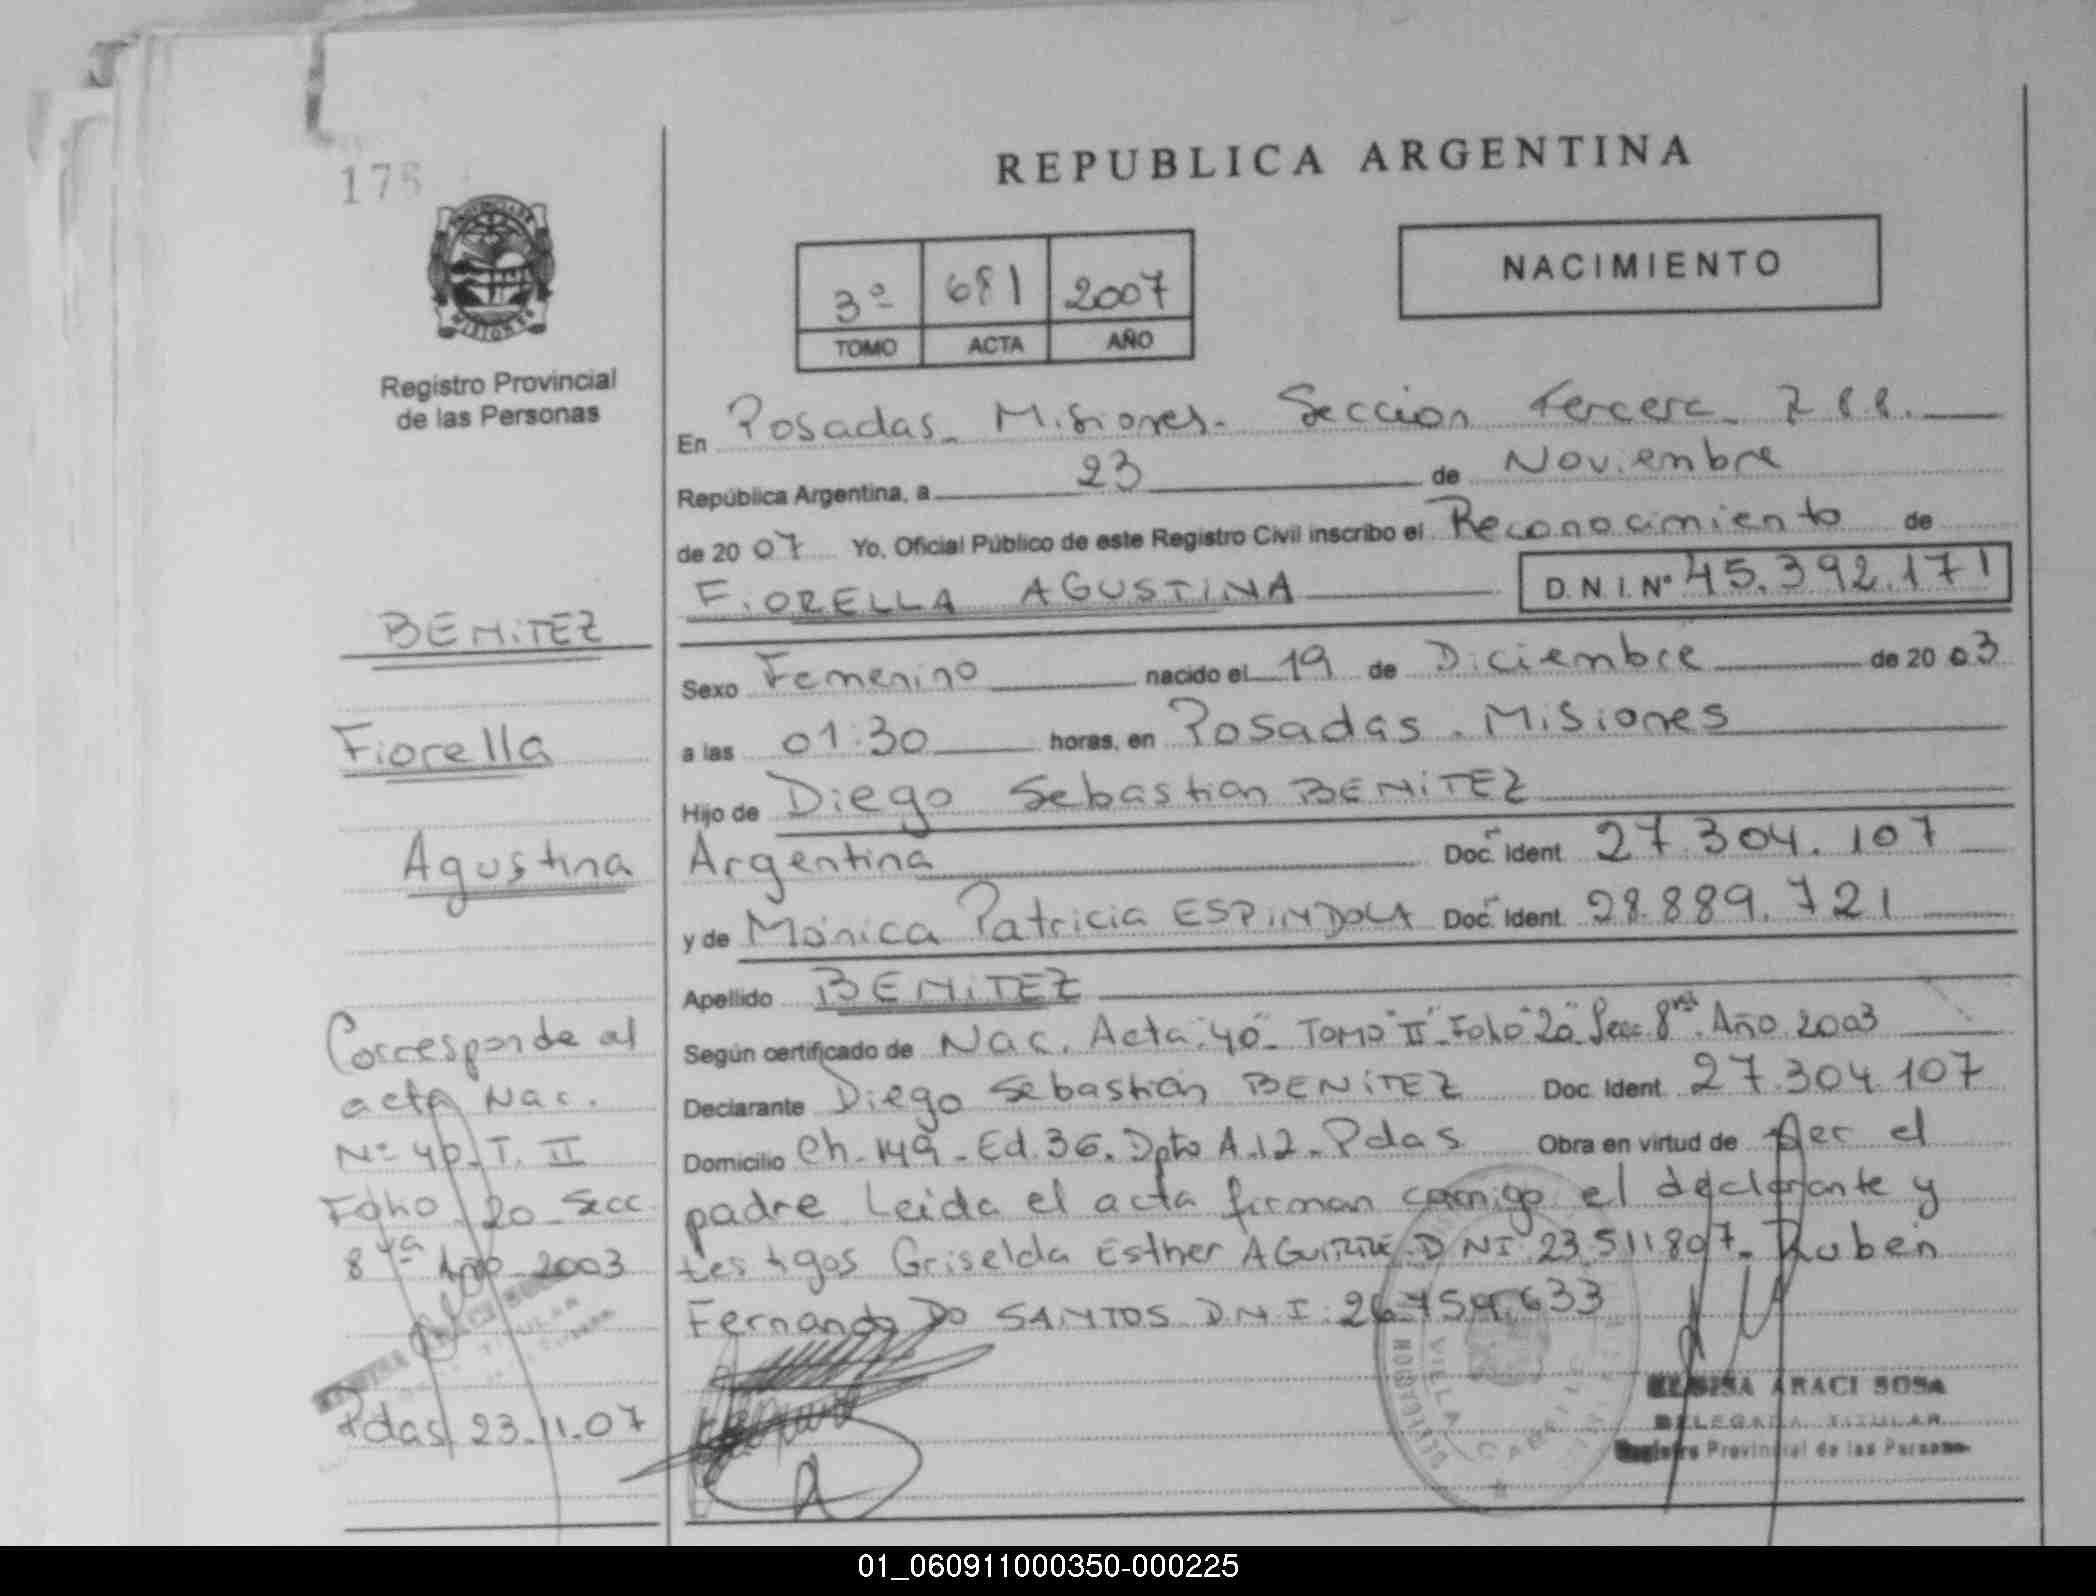 175
REPUBLICA ARGENTINA
NACIMIENTO
3º 681 2007
TOMO ACTA AÑO
PROVINCIA DE
MISIONES
Registro Provincial
de las Personas
BENITEZ
Fiorella
Agustina
Corresponde al
acta Nac.
Nº 40. T. II
Folio 20 Secc
8va Año 2003
Pdas 23.11.07
En Posadas. Misiones. Seccion Tercera
República Argentina, a 23 de Noviembre
de 2007 Yo, Oficial Público de este Registro Civil inscribo el Reconocimiento de
FIORELLA AGUSTINA D.N.I. Nº 45.392.171
Sexo Femenino nacido el 19 de Diciembre de 2003
a las 01:30 horas, en Posadas. Misiones
Hijo de Diego Sebastian BENITEZ
Argentina Doc. Ident. 27.304.107
y de Mónica Patricia ESPINDOLA Doc. Ident. 28.889.721
Apellido BENITEZ
Según certificado de Nac. Acta "40" Tomo "II" Folio "20" Secc. 8va. Año 2003
Declarante Diego Sebastián BENITEZ Doc. Ident. 27.304.107
Domicilio Ch. 149 - Ed. 36. Dpto A.12 - Pdas Obra en virtud de ser el
padre Leida el acta firman conmigo el declarante y
testigos Griselda Esther AGUIRRE D NI 23.511.807. Ruben
Fernando Do SANTOS D.N.I. 26.759.633
ARACI SOSA
DELEGADA TITULAR
Registro Provincial de las Personas
01_060911000350-000225